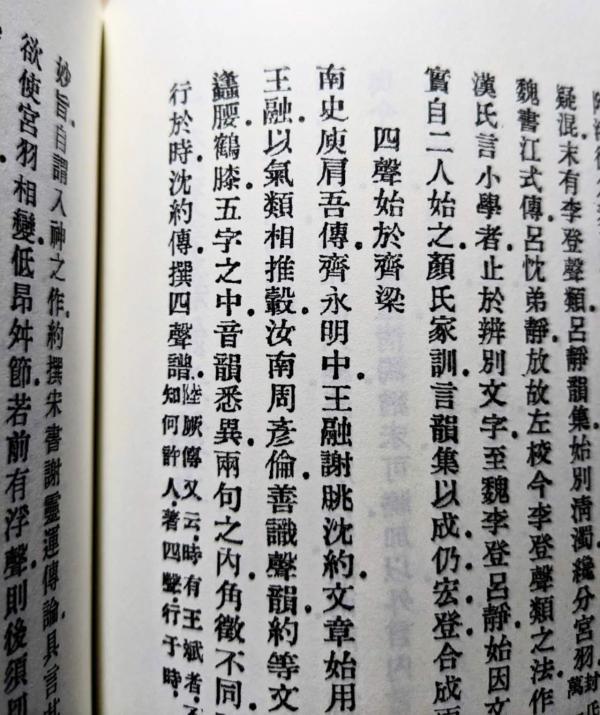 疑混。末有李登聲類。呂靜韻集。始別清濁。纔分宮羽。
魏書江式傳。呂忱弟靜。放故左校今李登聲類之法。作
漢氏言小學者。止於辨別文字。至魏李登呂靜。始因文
實自二人始之。顏氏家訓言韻集以成仍宏登合成
四聲始於齊梁
南史庾肩吾傳。齊永明中。王融謝眺沈約。文章始用
王融以氣類相推轂。汝南周彥倫。善識聲韻。約等文
蠭腰鶴膝。五字之中。音韻悉異。兩句之內。角徵不同。
行於時。沈約傳。撰四聲譜。
陸厥傳又云。時有王斌者。不
知何許人。著四聲。行于時。
妙旨。自謂入神之作。約撰宋書謝靈運傳論。具言
欲使宮羽相變。低昂舛節。若前有浮聲。則後須